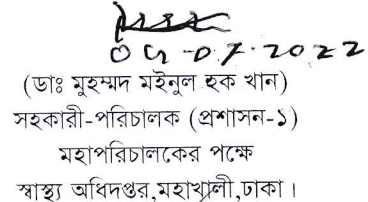 (ডাঃ মুহম্মদ মইনুল হক খান)
সহকারী-পরিচালক (প্রশাসন-১)
মহাপরিচালকের পক্ষে
স্বাস্থ্য অধিদপ্তর,মহাখালী,ঢাকা।